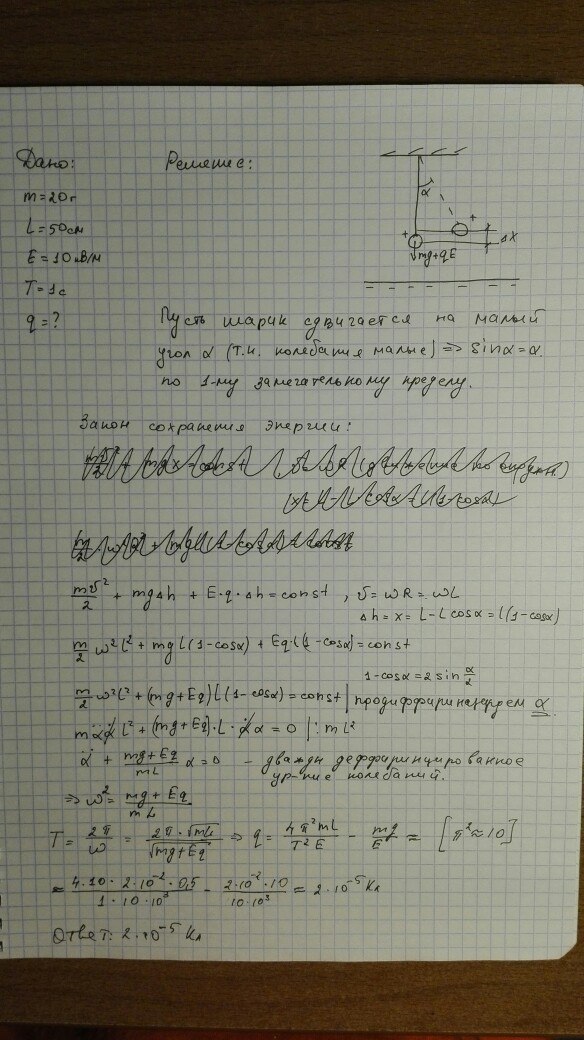 Дано:
Решение:
m=20г
L=50см
E=10кВ/м
T=1с
q=?
α
+
+
Δx
mg+qE
Пусть шарик сдвигается на малый
угол α (т.к. колебания малые) => sinα=α
по 1-му замечательному пределу.
Закон сохранения энергии:
mv²/2 + mgΔh + E·q·Δh = const, v=ωR=ωL
Δh=x=L-Lcosα=l(1-cosα)
m/2 ω²l² + mgl(1-cosα) + Eql(1-cosα)=const
1-cosα=2sin α/2
m/2 ω²l² + (mg+Eq)L(1-cosα)=const | продиффиринцируем α
mα̈α̇L² + (mg+Eq)·L·α̇α = 0 |: mL²
α̈ + (mg+Eq)/(mL) α=0 - дважды деффиринцированное
ур-ние колебаний.
=> ω² = (mg+Eq)/(mL)
T = 2π/ω = 2π·√mL/√mg+Eq => q = 4π²mL/T²E - mg/E ≈ [π²≈10]
= 4·10·2·10⁻²·0,5/1·10·10³ - 2·10⁻²·10/10·10³ = 2·10⁻⁵ Кл
Ответ: 2·10⁻⁵ Кл